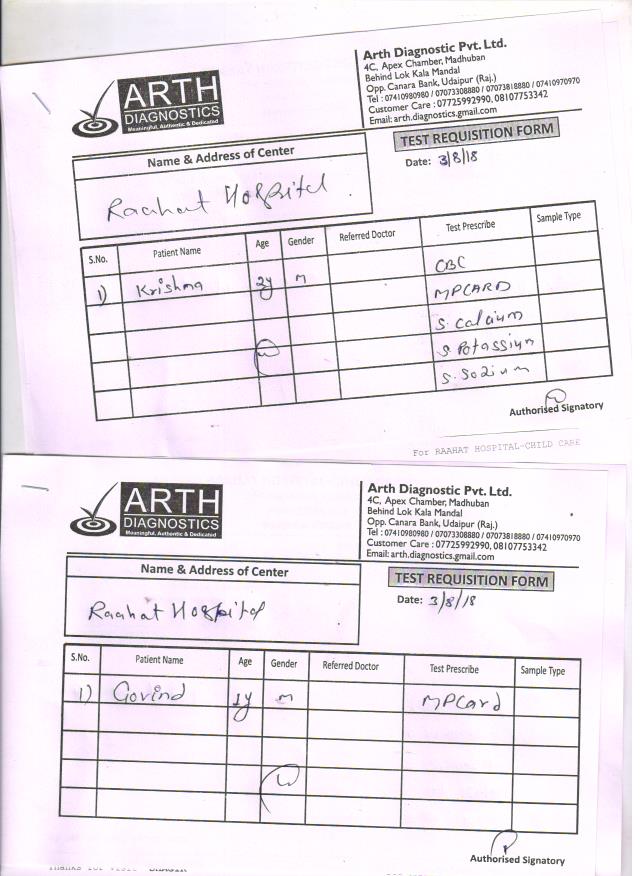 ARTH
DIAGNOSTICS
Meaningful, Authentic & Dedicated
Arth Diagnostic Pvt. Ltd.
4C, Apex Chamber, Madhuban
Behind Lok Kala Mandal
Opp. Canara Bank, Udaipur (Raj.)
Tel : 07410980980 / 07073308880 / 07073818880 / 07410970970
Customer Care : 07725992990, 08107753342
Email: arth.diagnostics.gmail.com
TEST REQUISITION FORM
Name & Address of Center
Date: 3/8/18
Raahat Hospital
S.No. Patient Name Age Gender Referred Doctor Test Prescribe Sample Type
CBC
1) Krishna 2y M MPCARD
S. Calcium
S. Potassium
S. Sodium
Authorised Signatory
For RAAHAT HOSPITAL-CHILD CARE
ARTH
DIAGNOSTICS
Meaningful, Authentic & Dedicated
Arth Diagnostic Pvt. Ltd.
4C, Apex Chamber, Madhuban
Behind Lok Kala Mandal
Opp. Canara Bank, Udaipur (Raj.)
Tel : 07410980980 / 07073308880 / 07073818880 / 07410970970
Customer Care : 07725992990, 08107753342
Email: arth.diagnostics.gmail.com
Name & Address of Center
TEST REQUISITION FORM
Raahat Hospital
Date: 3/8/18
S.No. Patient Name Age Gender Referred Doctor Test Prescribe Sample Type
1) Govind 1y M MPCard
Authorised Signatory